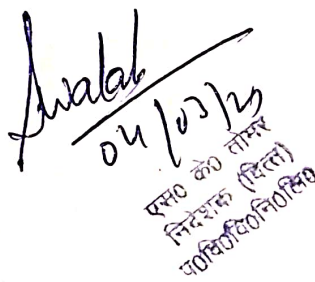 04/03/25
एस० के० तोमर
निदेशक (वित्त)
प०वि०वि०नि०लि०